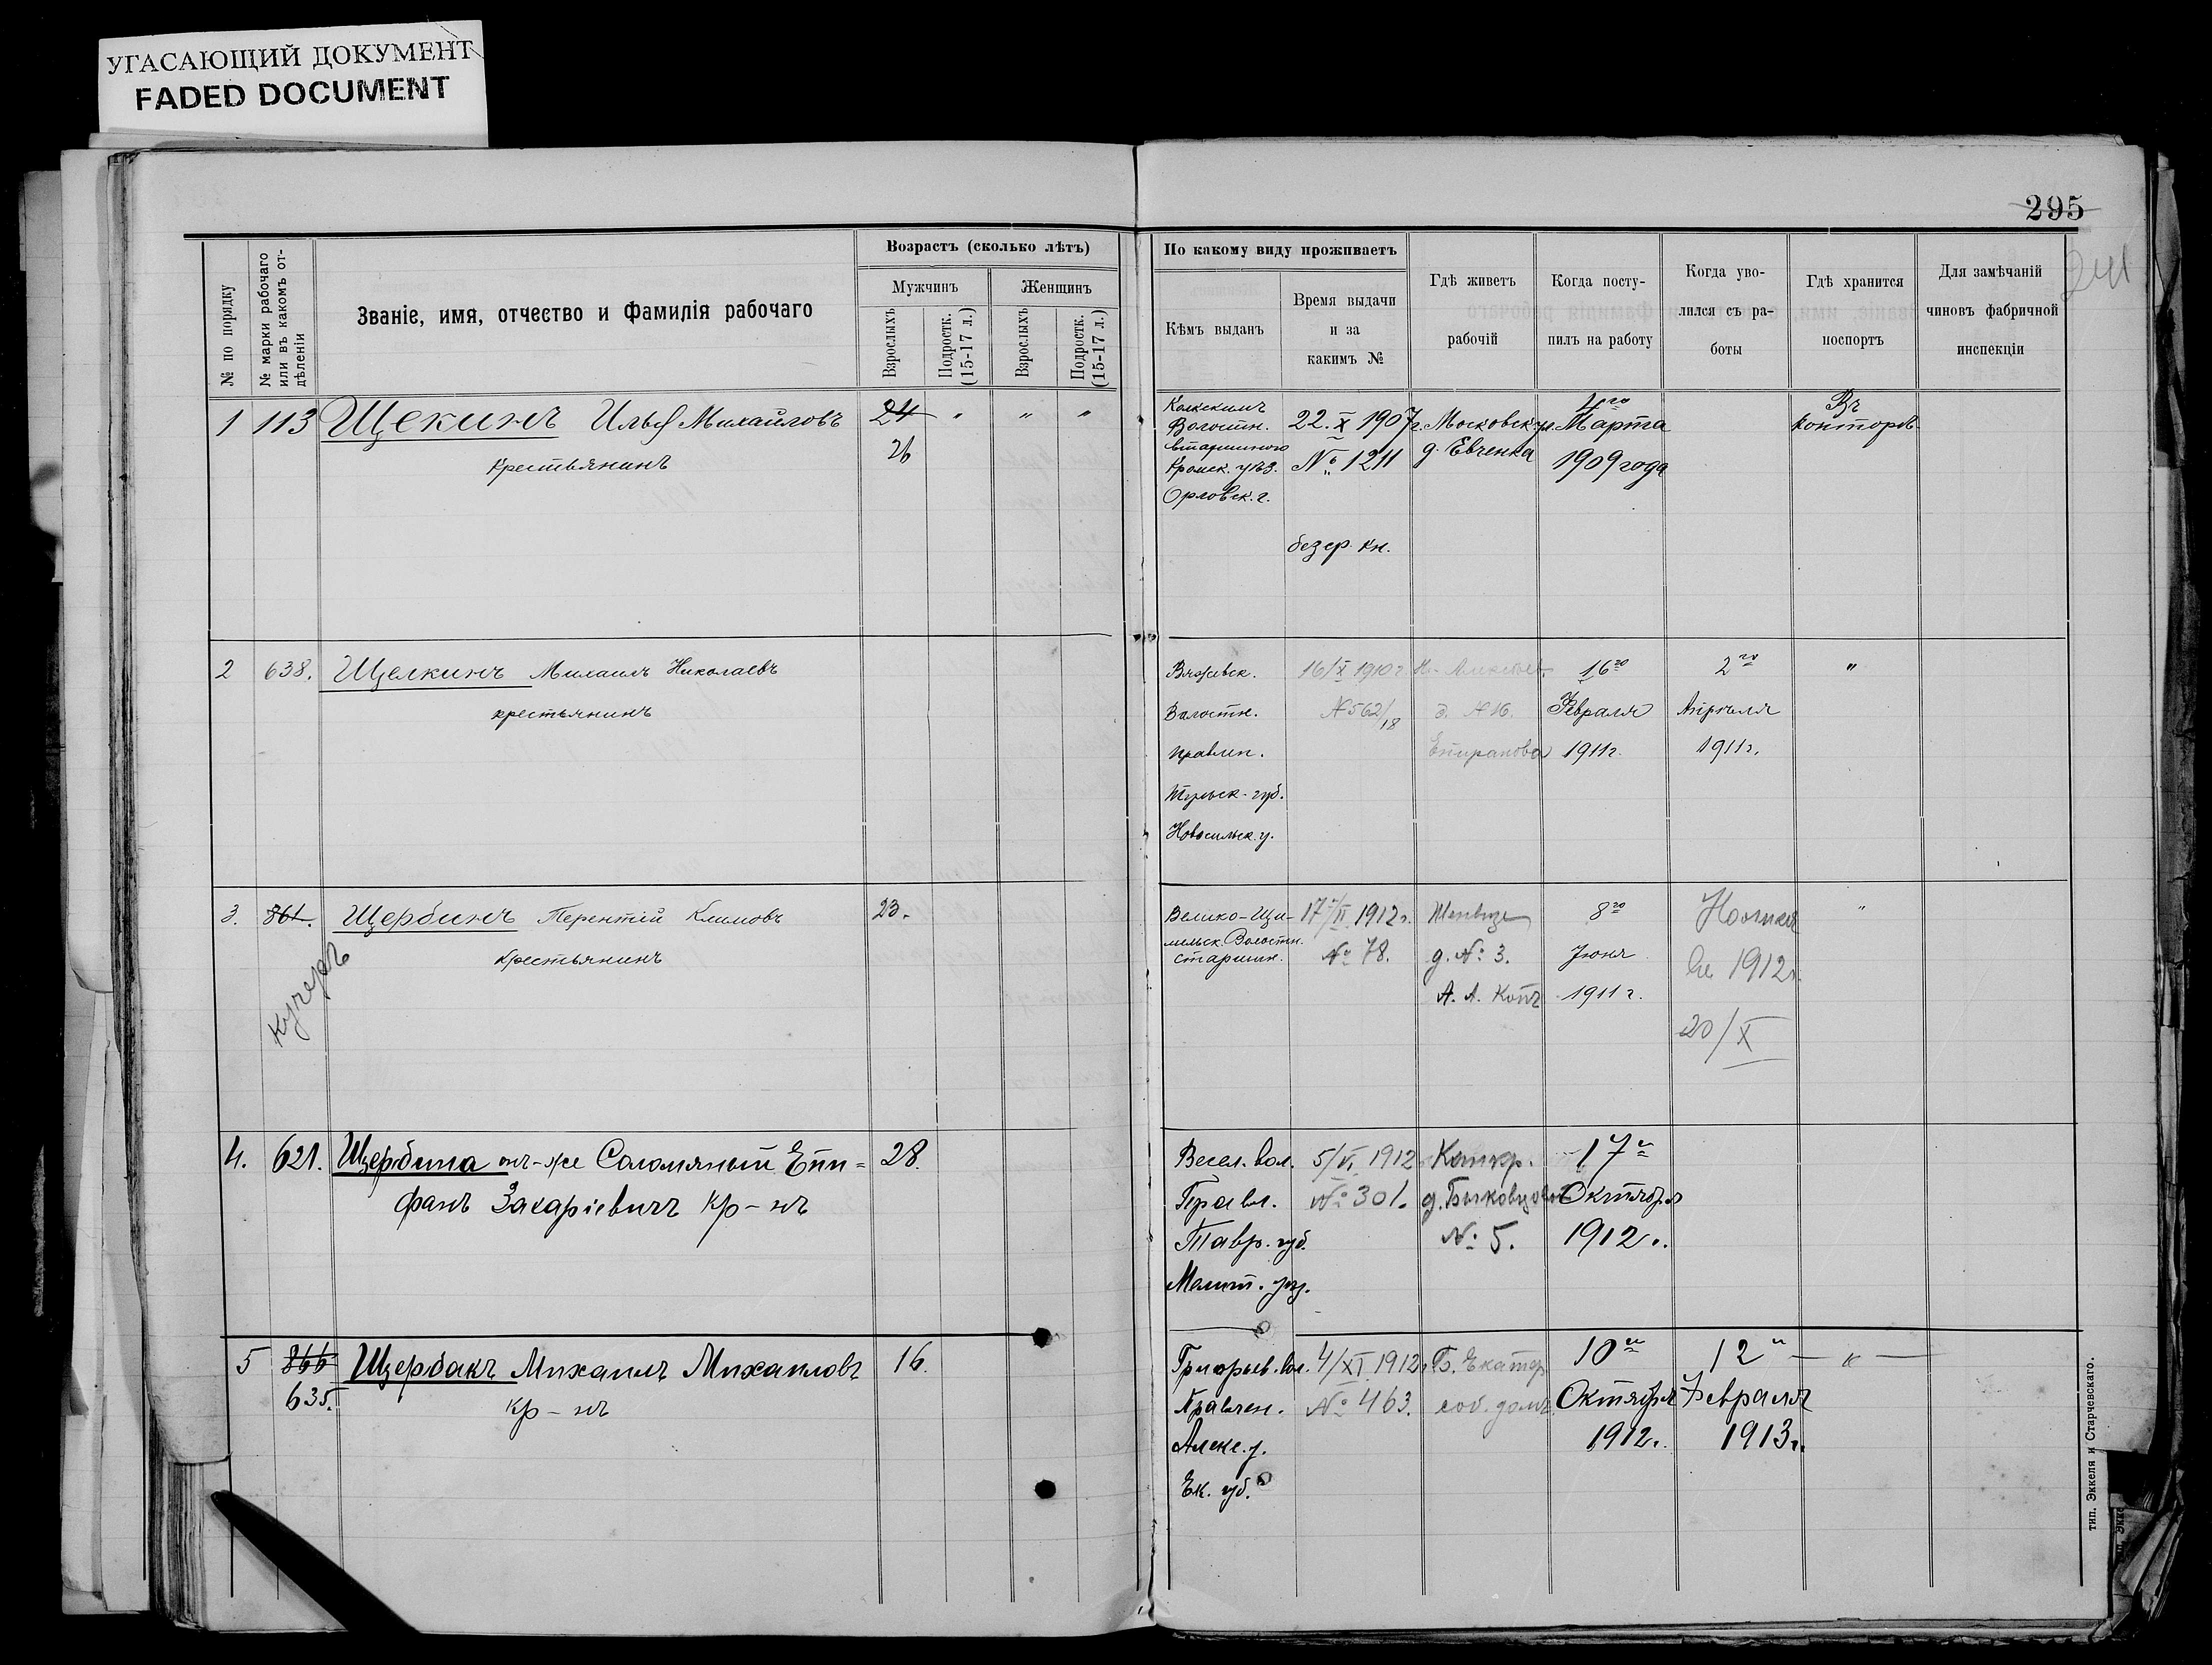 УГАСАЮЩИЙ ДОКУМЕНТ
FADED DOCUMENT
295
241
№ по порядку
№ марки рабочаго
или въ какомъ от-
дѣленіи
Званіе, имя, отчество и фамилія рабочаго
Возрастъ (сколько лѣтъ)
Мужчинъ
Женщинъ
Взрослыхъ
Подростк.
(15-17 л.)
Взрослыхъ
Подростк.
(15-17 л.)
По какому виду проживаетъ
Кѣмъ выданъ
Время выдачи
и за
какимъ №
Гдѣ живетъ
рабочій
Когда посту-
пилъ на работу
Когда уво-
лился съ ра-
боты
Гдѣ хранится
поспортъ
Для замѣчаній
чиновъ фабричной
инспекціи
1 113 Щекинъ Илья Михайловъ 24 " " "
крестьянинъ 26
Волостн.
Кромск. уѣз.
Орловск. г.
22. X 1907 г.
№ 1211
без ср. кн.
Московск. ул.
д. Евченка
1го
Марта
1909 года
Въ
конторѣ
2 638. Щелкинъ Михаилъ Николаевъ
крестьянинъ
Вяжевск.
Волостн.
правлен.
Тульск. губ.
Новосильск. у.
16/X 1910 г.
№ 562/18
д. № 16.
16го
Февраля
1911 г.
2го
Апрѣля
1911 г.
"
3. 861. Щербинъ Терентій Климовъ 23.
Крестьянинъ
кучеръ
Велико-Щи-
Волостн.
старшин.
17/II 1912 г.
№ 78.
д. № 3.
А. А. Копъ
8го
Іюня
1911 г.
1912 г.
20/X
"
4. 621. Щербина онъ-же Соломяный Епи- 28.
фанъ Захаріевичъ кр-нъ
Весел. вол.
Правл.
Тавр. губ.
Мелит. уѣз.
5/VI 1912
№ 301.
№ 5.
17го
Октября
1912 г.
5 866 Щербакъ Михаилъ Михаиловъ 16.
635. кр-нъ
Григорьев. вол.
Правлен.
Алекс. у.
Ек. губ.
4/XI 1912 г.
№ 463.
Б. Екатер.
соб. домъ
10го
Октября
1912 г.
12го
Февраля
1913 г.
— " —
тип. Эккеля и Старчевскаго.